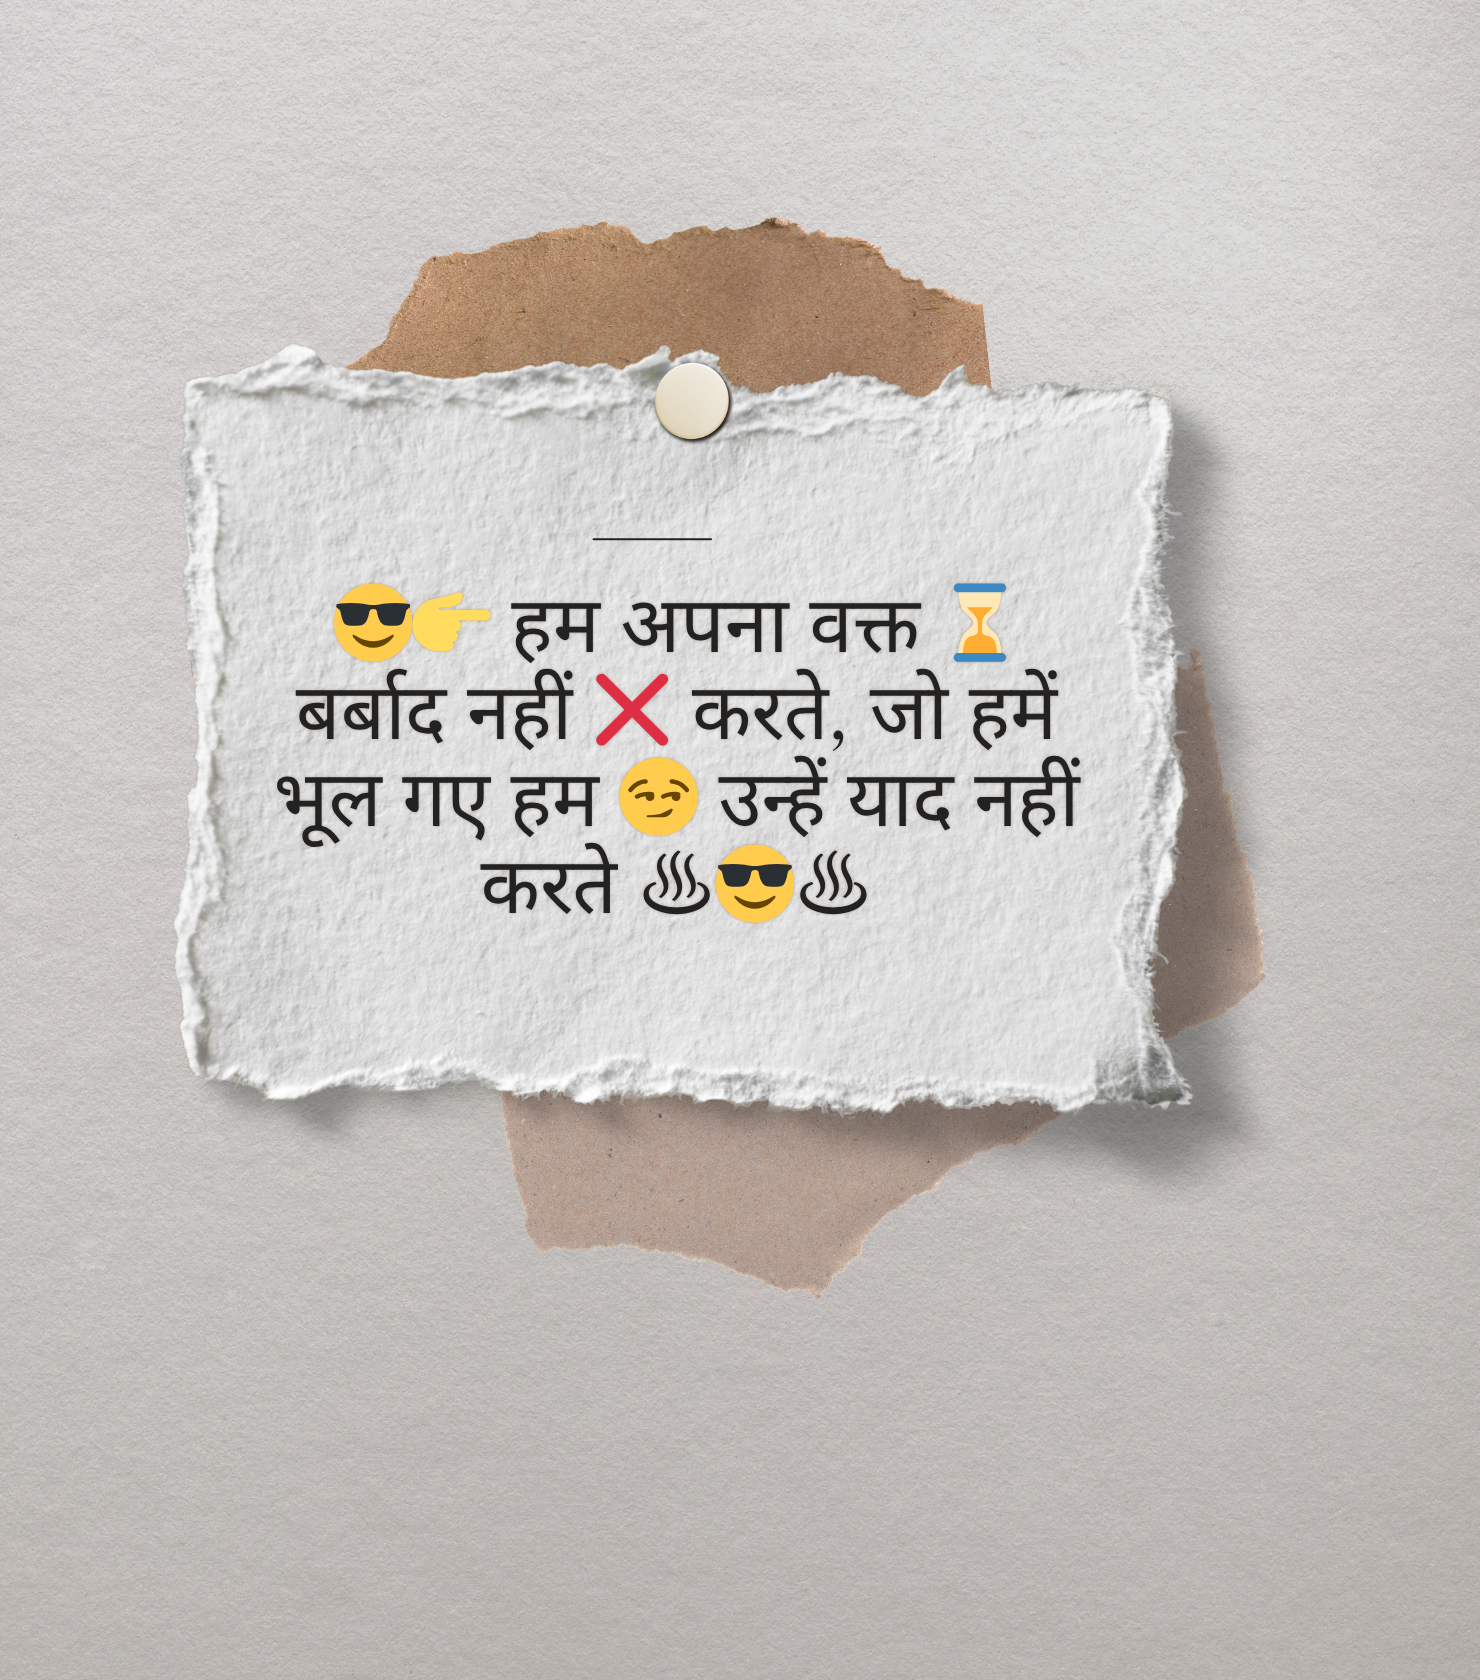 😎👉 हम अपना वक्त ⏳
बर्बाद नहीं ❌ करते, जो हमें
भूल गए हम 😏 उन्हें याद नहीं
करते ♨😎♨